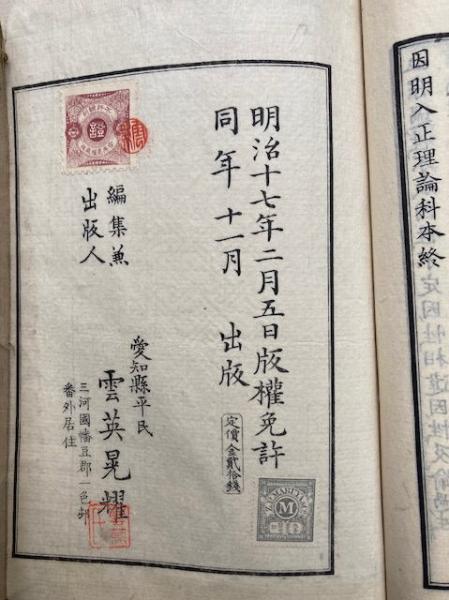 因明入正理論科本終
明治十七年二月五日版權免許
同年十一月 出版
定價金貳拾錢
編集兼
出版人
愛知縣平民
雲英晃耀
三河國幡豆郡一色邨
番外居住
證
M
10